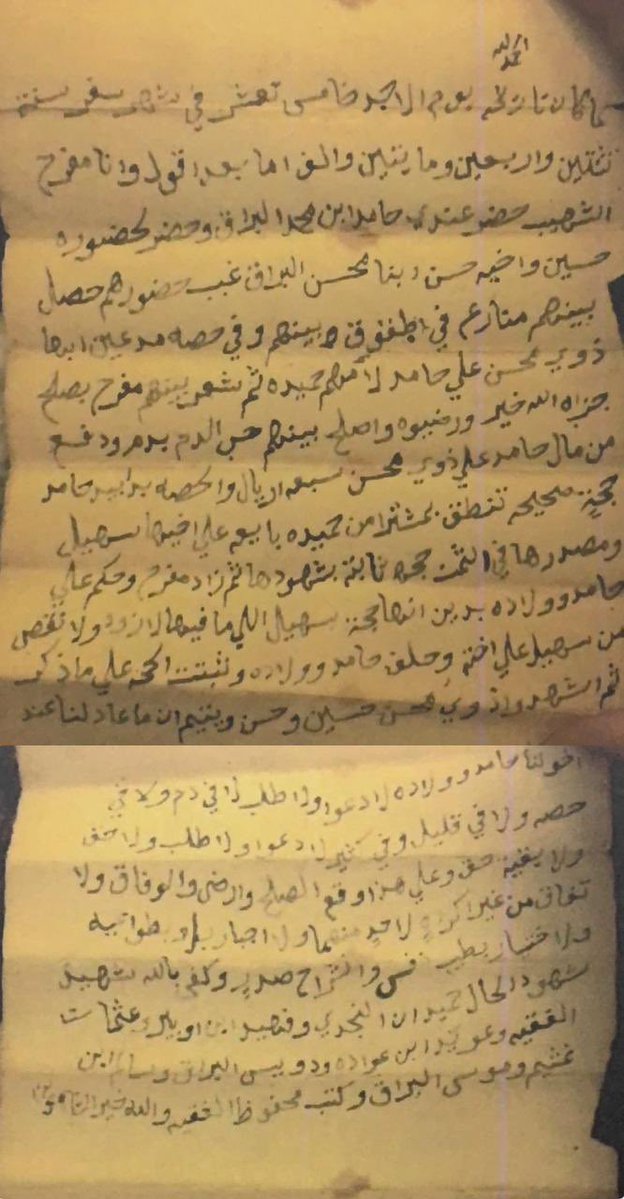 الحمد لله
لما كان تاريخه يوم الاحد خامس تعشر في شهر سفر سنة
ثنتين واربعين وماريتين والف اما بعد اقول وانا مفرح
الشهيب حضر عندي حامد ابن محمد البراق وحضر لحضوره
حسين واخيه حسن ابنا محسن البراق غب حضورهم حصل
بينهم منازعه في بينهم وفي حصه مدعين ابها
ذوي محسن علي حامد لامهم حميده ثم شعر بينهم مفرح بصلح
جزاه الله خير ورضيوه واصلح بينهم الدم بدم ودفع
من مال حامد علي ذوي محسن سبعه اريال والحصه بدا بيد حامد
حجة صحيحه تنطق بمشترا من حميده بايعه علي اخيها سهيل
ومصدرها في الثمن حجه ثابتة بشهودها ثم زاد مفرح وحكم علي
حامد وولاده بدين انها حجة سهيل اللي ما فيها لا زود ولا نقص
من سهيل علي اخته وحلف حامد وولاده وثبتت الحجه علي ما ذكر
ثم اشهدوا ذوي محسن حسين وحسن وبنيهم ان ما عاد لنا عند
اخولنا حامد وولاده لا دعوا ولا طلب لا في دم ولا في
حصه ولا في قليل وفي كثير لا دعوا ولا طلب ولا حق
ولا بقية حق وعلي هذا وقع الصلح والرضى والوفاق ولا
تفاق من غير اكراه لاحد منهما ولا اجبار بل بطواعيه
ولا ختيار بطيب نفس وانشراح صدر وكفى بالله شهيد
شهود الحال حميدان النجدي وفهيد ابن وعثمان
الفقيه وعويد ابن عواده ودويس البراق وسالم ابن
غشيم وموسى البراق وكتب محفوظ الفقيه والله خير